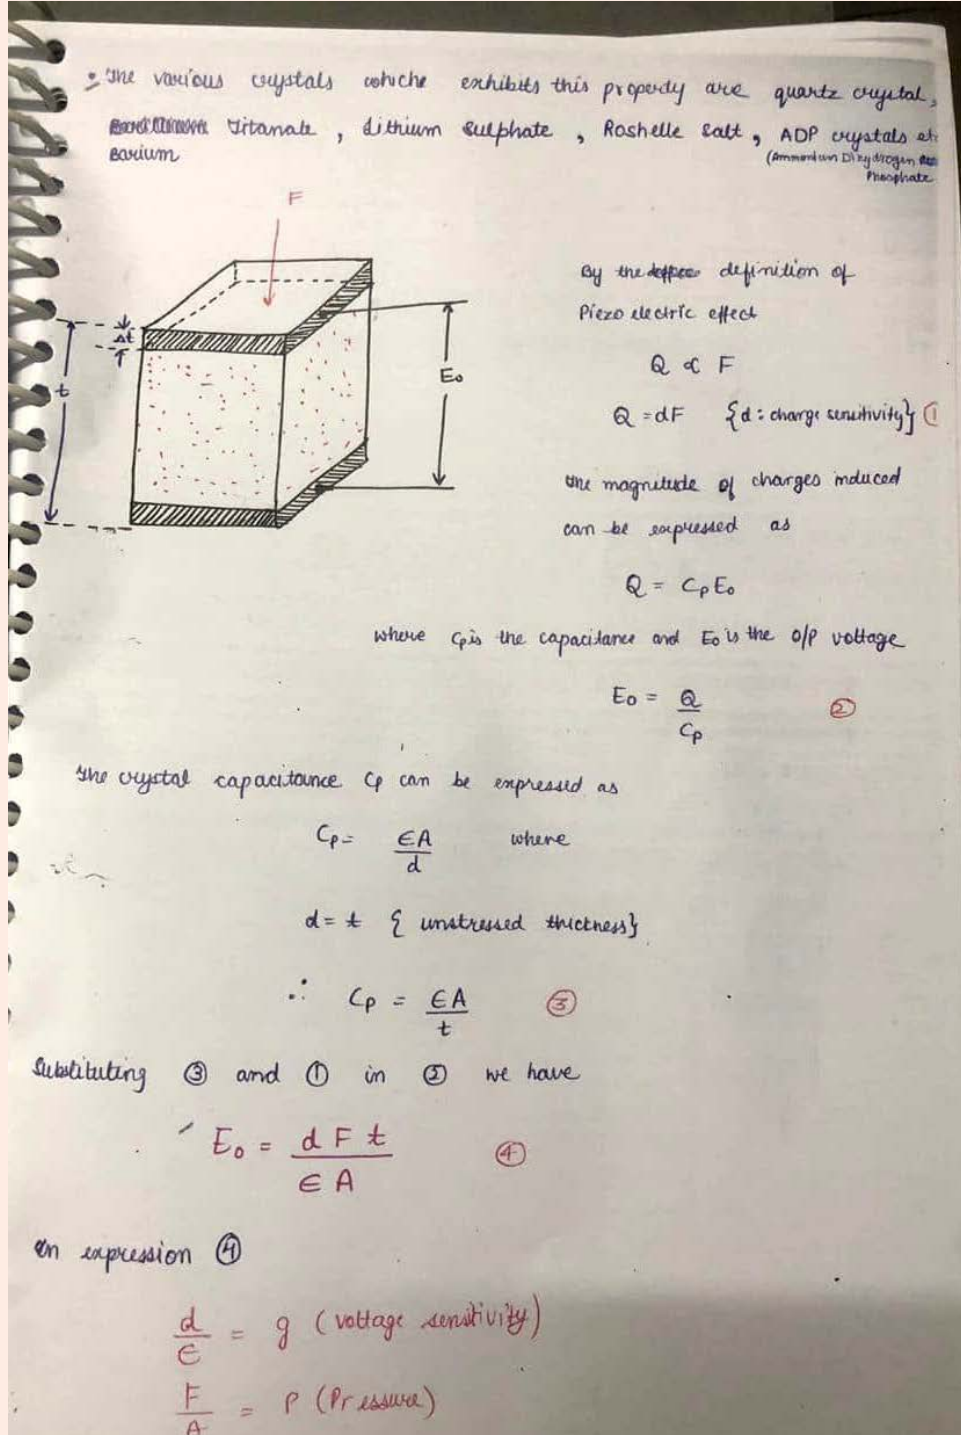 • The various crystals whiche exhibits this property are quartz crystal,
Titanate, Lithium Sulphate, Roshelle salt, ADP crystals etc
Barium
(Ammonium Dihydrogen
Phosphate
F
Δt
t
E₀
By the definition of
Piezo electric effect
Q ∝ F
Q = dF {d : charge sensitivity} ①
the magnitude of charges induced
can be expressed as
Q = CpE₀
where Cp is the capacitance and E₀ is the O/P voltage
E₀ = Q/Cp ②
The crystal capacitance Cp can be expressed as
Cp = ϵA/d where
d = t { unstressed thickness}
∴ Cp = ϵA/t ③
Substituting ③ and ① in ② we have
E₀ = d F t/ϵ A ④
In expression ④
d/ϵ = g (voltage sensitivity)
F/A = P (Pressure)